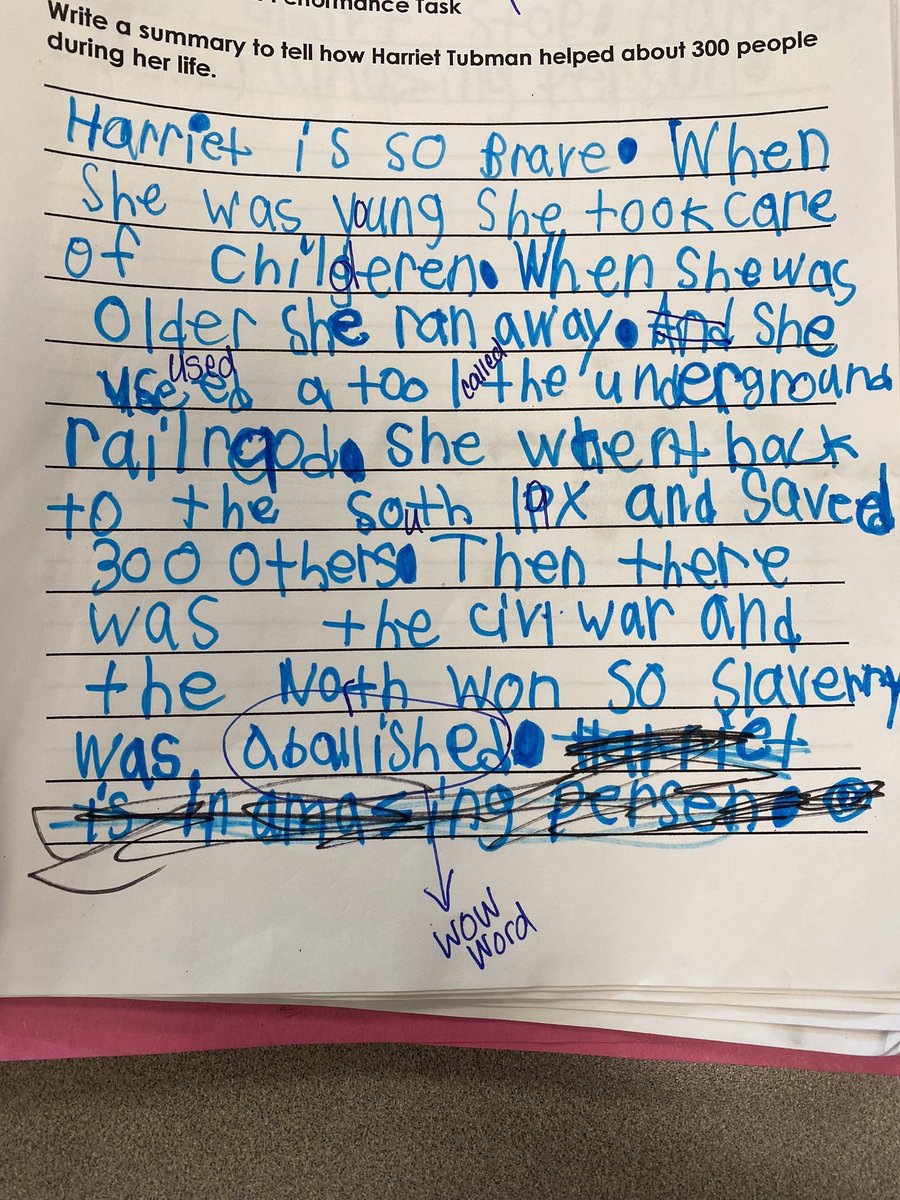 Performance Task
Write a summary to tell how Harriet Tubman helped about 300 people
during her life.
Harriet is so Brave. When
She was young She took care
of Childeren. When she was
Older she ran away. And She
useed used a tool called the underground
railroad. She whent back
to the South 19x and Saved
300 Others. Then there
was the civi war and
the North won so Slaverny
was aballished. Harriet
is In amasing persen.
WOW
Word